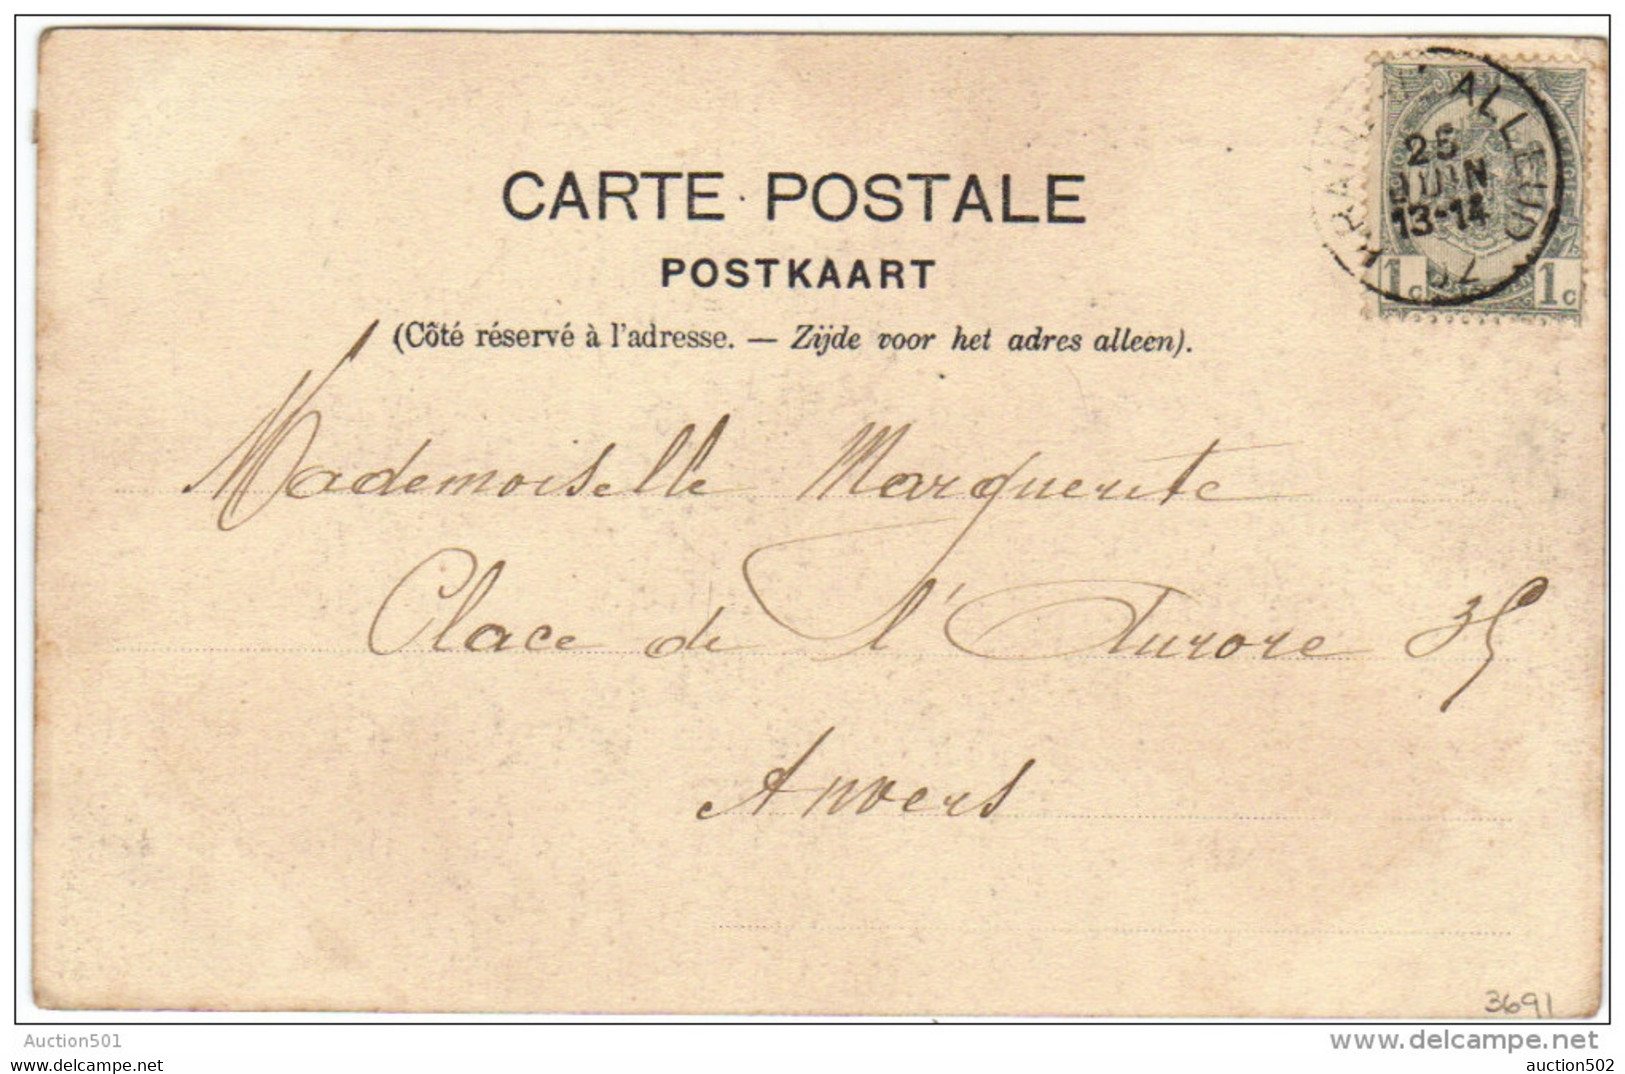 CARTE POSTALE
POSTKAART
(Côté réservé à l'adresse. — Zijde voor het adres alleen).
ALLEUD
25
JUIN
13-14
07
1c 1c
Mademoiselle Marguerite
Place de l'Aurore 35
Anvers
3691
Auction501
www.delcampe.net
auction501 auction502